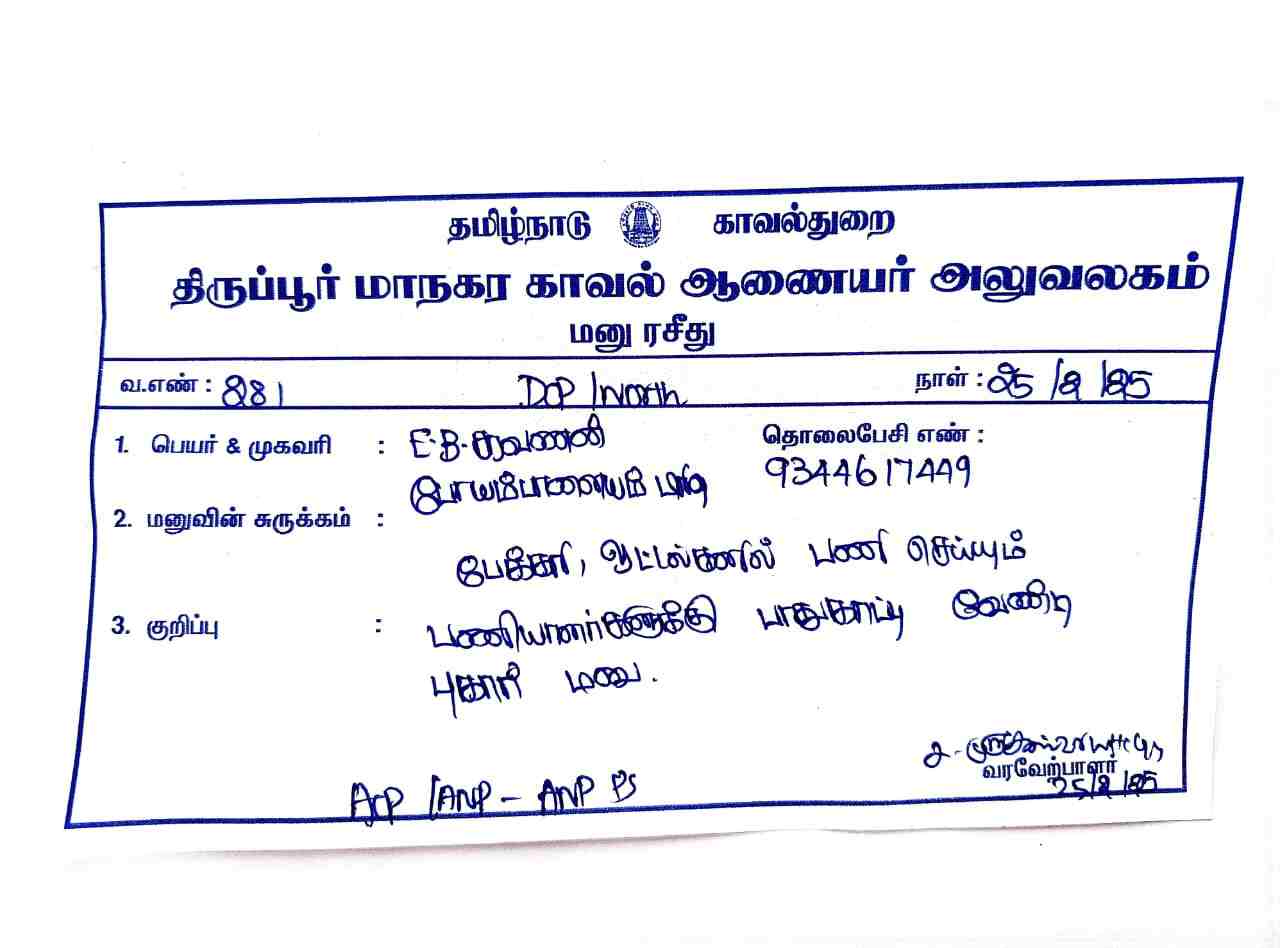 தமிழ்நாடு காவல்துறை
திருப்பூர் மாநகர காவல் ஆணையர் அலுவலகம்
மனு ரசீது
வ.எண் : 281 DCP/North நாள் : 25/2/25
1. பெயர் & முகவரி : E.B.சரவணன் தொலைபேசி எண் :
போயம்பாளையம் 9344617449
2. மனுவின் சுருக்கம் :
பேக்கரி, ஓட்டல்களில் பணி செய்யும்
3. குறிப்பு : பணியாளர்களுக்கு பாதுகாப்பு வேண்டி
புகார் மனு.
வரவேற்பாளர்
ACP/ANP - ANP PS 25/2/25